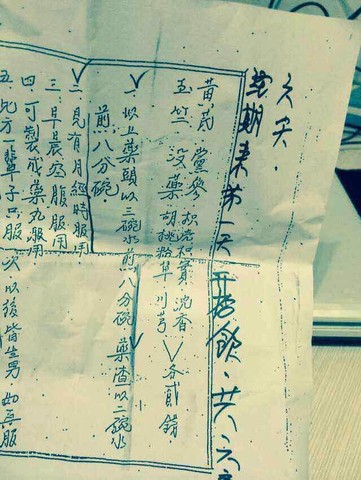 六天.
經期來第一天開始飲.共六
黃芪 黨參 沈香 各貳錢
玉竺 没藥 胡桃 粉草 川芎
一、以上藥頭以三碗水煎八分碗 藥渣以二碗水
煎八分碗.
二、見有月經時服用
三、早晨空腹服用
四、可製成藥丸服用
五、此方一輩子只服 次以後皆生男,如再服